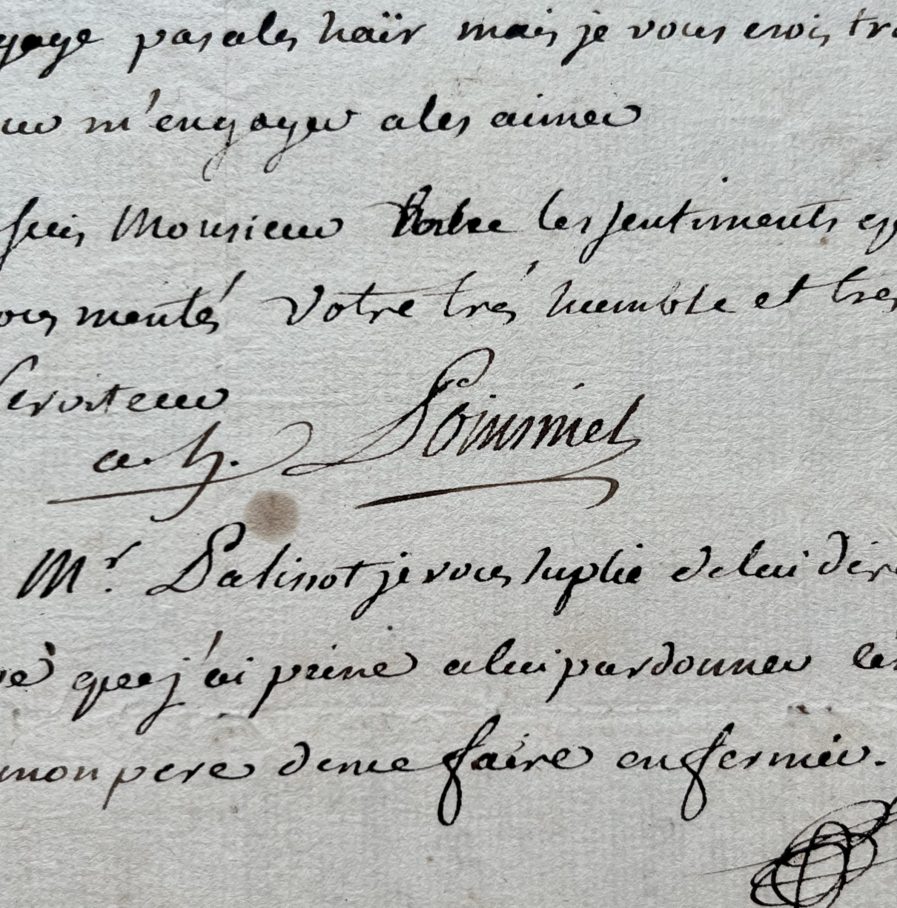 gage pas a les haïr mais je vous crois tro
m'engager a les aimer
suis Monsieur les sentiments
vous mentés Votre trés humble et tres
Serviteur
a. h. Poinsinet
Mr. Palissot je vous suplie de lui dire
que j'ai peine a lui pardonner
mon pere de me faire enfermer.